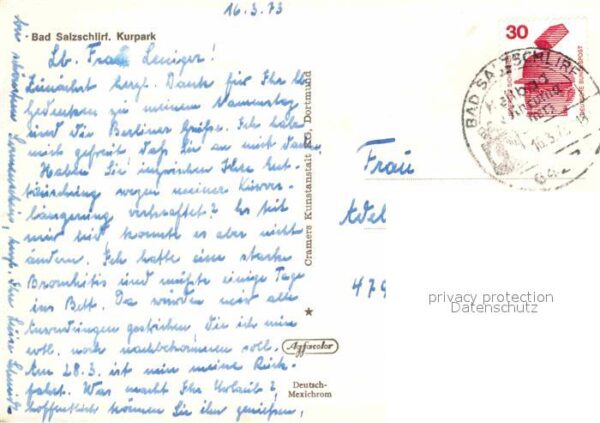 16.3.73
Bad Salzschlirf. Kurpark
Lb. Frau Leiniger!
Zunächst herzl. Dank für Ihr lb
Gedenken zu meinem Namenstag
und die Berliner Grüße. Ich habe
mich gefreut daß Sie an mich dach
Haben Sie inzwischen Ihre Ent-
täuschung wegen meiner Kurver-
längerung verkraftet? Es tut
mir leid konnte es aber nicht
ändern. Ich hatte eine starke
Bronchitis und mußte einige Tage
ins Bett. Da wurden mir alle
Anwendungen gestrichen die ich nun
evtl. noch nachbekommen soll.
Am 28.3. ist nun meine Rück-
fahrt. Was macht Ihr Urlaub?
hoffentlich können Sie ihn genießen,
schönsten Sonnenschein, Ihre
Cramers Kunstanstalt KG, Dortmund
Agfacolor
Deutsch-
Mexichrom
30
DEUTSCHE BUNDESPOST
BAD SALZSCHLIRF
Frau
Adel
479
privacy protection
Datenschutz